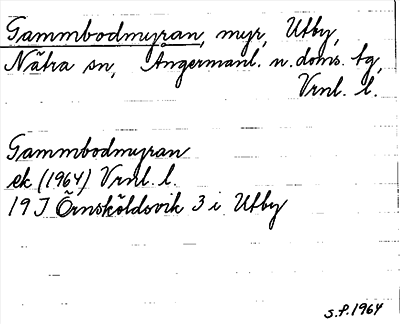 Gammbodmyran, myr, Utby,
Nätra sn, Ångermanl. n. doms. tg,
Vrnl. l.
Gammbodmyran
ek (1964) Vrnl. l.
19 J Örnsköldsvik 3 i Utby
S.F. 1964